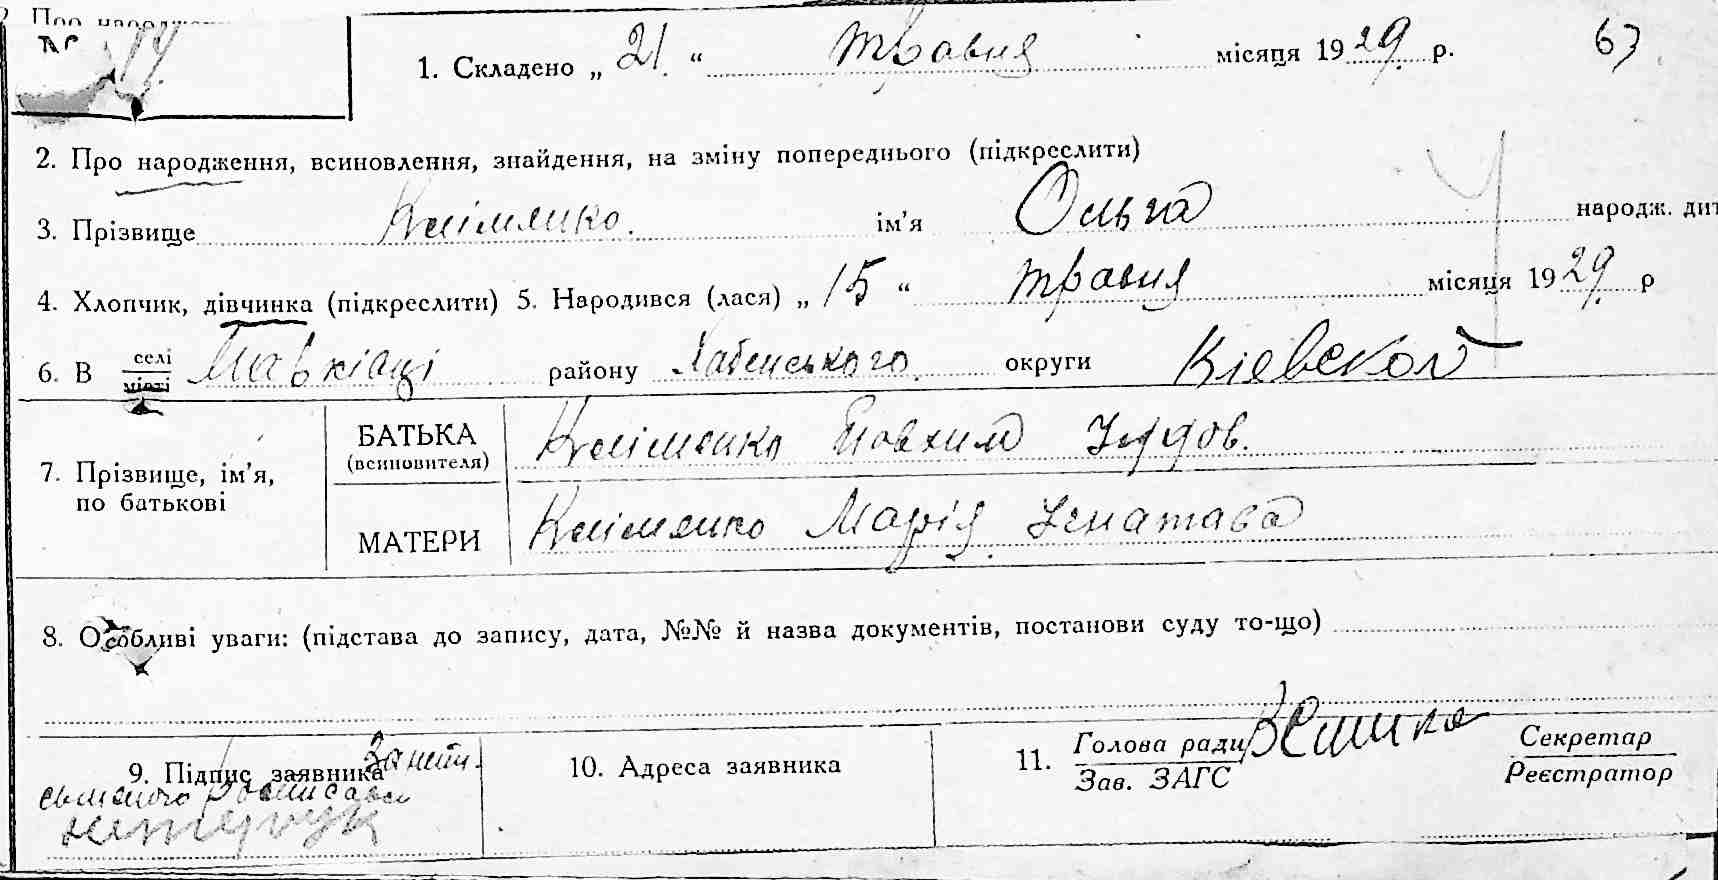 Про народжен
№
1. Складено „ 21 “ травня місяця 1929 р. 67
2. Про народження, всиновлення, знайдення, на зміну попереднього (підкреслити)
3. Прізвище Кліменко. ім’я Ольга народж. дит
4. Хлопчик, дівчинка (підкреслити) 5. Народився (лася) „ 15 “ травня місяця 1929 р
6. В селі місті району Хабенського округи Кіевской
7. Прізвище, ім’я, по батькові
БАТЬКА (всиновителя) Кліменко Йовхим
МАТЕРИ Кліменко Марія Ігнатава
8. Особливі уваги: (підстава до запису, дата, №№ й назва документів, постанови суду то-що)
9. Підпис заявника За неписьменого росписався
10. Адреса заявника
11. Голова ради Зав. ЗАГС
Секретар Реєстратор